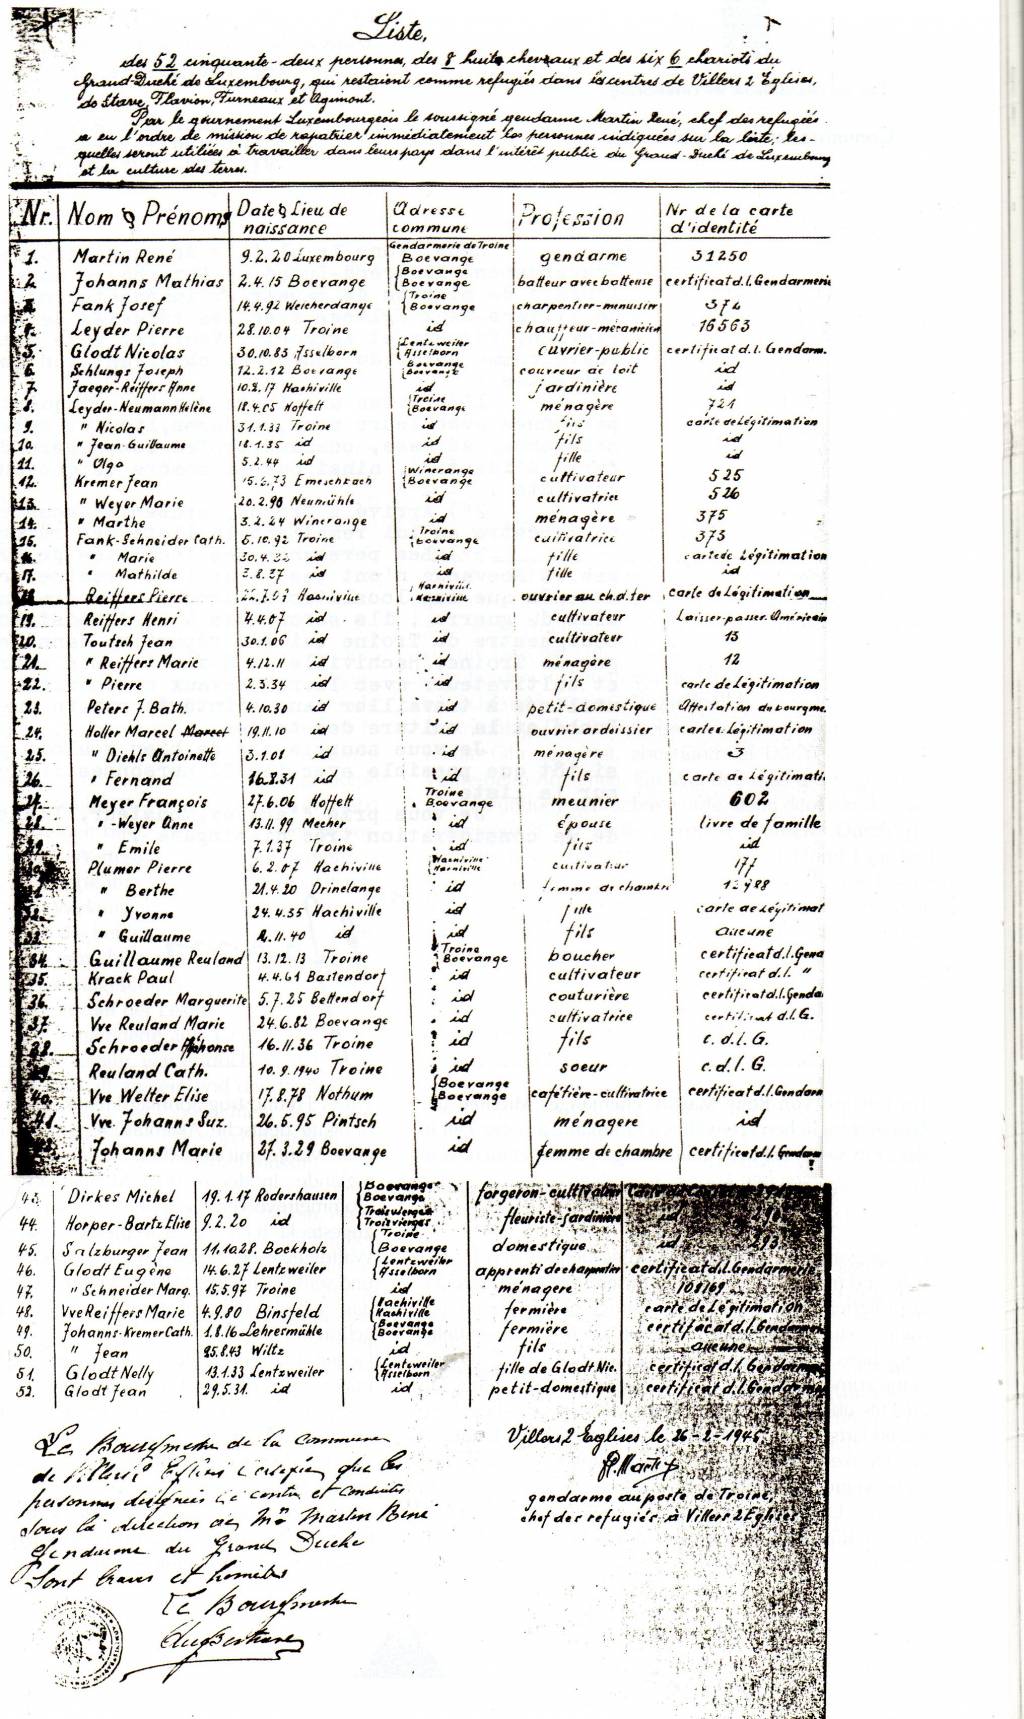 Liste,
des 52 cinquante-deux personnes, des 8 huit chevaux et des six 6 chariots du
Grand-Duché de Luxembourg, qui restaient comme refugiés dans les centres de Villers 2 Eglises,
de Stave, Flavion, Furneaux et Agimont.
Par le gournement Luxembourgeois le soussigné gendarme Martin René, chef des refugiés
a eu l'ordre de mission de rapatrier immédiatement les personnes indiquées sur la liste, les-
quelles seront utilisées à travailler dans leurs pays dans l'intérêt public du Grand-Duché de Luxembourg
et la culture des terres.
Nr. Nom & Prénoms Date & Lieu de naissance Adresse commune Profession Nr de la carte d'identité
1. Martin René 9.2.20 Luxembourg Gendarmerie de Troine Boevange gendarme 31250
2. Johanns Mathias 2.4.15 Boevange Boevange Boevange batteur avec batteuse certificat d.l. Gendarmerie
3. Fank Josef 14.4.92 Weicherdange Troine Boevange charpentier-menuisier 372
4. Leyder Pierre 28.10.04 Troine id chauffeur-mécanicien 16563
5. Glodt Nicolas 30.10.83 Asselborn Lentzweiler Asselborn ouvrier-public certificat d.l. Gendarm.
6. Schlungs Joseph 12.2.12 Boevange Boevange Boevange couvreur de toit id
7. Jaeger-Reiffers Anne 10.2.17 Hachiville id jardinière id
8. Leyder-Neumann Helène 18.4.05 Hoffelt Troine Boevange ménagère 721
9. " Nicolas 31.1.33 Troine id fils carte de Légitimation
10. " Jean-Guillaume 18.1.35 id id fils id
11. " Olga 5.2.44 id id fille id
12. Kremer Jean 15.2.73 Emeschbach Wincrange Boevange cultivateur 525
13. " Weyer Marie 20.2.90 Neumühle id cultivatrice 526
14. " Marthe 3.2.24 Wincrange id ménagère 375
15. Fank-Schneider Cath. 5.10.92 Troine Troine Boevange cultivatrice 373
16. " Marie 30.4.32 id id fille carte de Légitimation
17. " Mathilde 3.8.37 id id fille id
18 Reiffers Pierre Hachiville Hachiville Hachiville ouvrier au ch.d.fer carte de Légitimation
19. Reiffers Henri 4.4.07 id id cultivateur Laisser-passer Américain
20. Toutsch Jean 30.1.06 id id cultivateur 13
21. " Reiffers Marie 4.12.11 id id ménagère 12
22. " Pierre 2.3.34 id id fils carte de Légitimation
23. Peters J. Bath. 4.10.30 id id petit-domestique Attestation de bourgme.
24. Holler Marcel Marcel 19.11.10 id id ouvrier ardoisier carte d. Légitimation
25. " Diehls Antoinette 3.1.08 id id ménagère 3
26. " Fernand 16.8.31 id id fils carte de Légitimati.
27. Meyer François 27.6.06 Hoffelt Troine Boevange meunier 602
28. " -Weyer Anne 13.11.99 Mecher id épouse livre de famille
29. " Emile 7.1.37 Troine id fils id
30. Plumer Pierre 6.2.07 Hachiville Hachiville Hachiville cultivateur 177
31. " Berthe 21.4.20 Drinklange id femme de chambre
32. " Yvonne 24.4.35 Hachiville id fille carte de Légitimat
33. " Guillaume 2.11.40 id id fils aucune
34. Guillaume Reuland 13.12.13 Troine Troine Boevange boucher certificat d.l. Genda
35. Krack Paul 4.4.61 Bastendorf id cultivateur certificat d.l. "
36. Schroeder Marguerite 5.7.25 Bettendorf id couturière certificat d.l. Genda
37. Vve Reuland Marie 24.6.82 Boevange id cultivatrice certificat d.l.G.
38. Schroeder Alphonse 16.11.36 Troine id fils c.d.l.G.
39. Reuland Cath. 10.9.1940 Troine id soeur c.d.l.G.
40. Vve Welter Elise 17.8.78 Nothum Boevange Boevange cafétière-cultivatrice certificat d.l. Gendarm
41. Vve. Johanns Suz. 26.5.95 Pintsch id ménagere id
Johanns Marie 27.3.29 Boevange id femme de chambre certificat d.l. Gendarm
43. Dirkes Michel 19.1.17 Rodershausen Boevange Boevange forgeron-cultivateur
44. Horper-Bartz Elise 9.2.20 id Troisvierges Troisvierges fleuriste-jardinière id
45. Salzburger Jean 11.10.28. Bockholz Troine Boevange domestique id 293
46. Glodt Eugène 14.6.27 Lentzweiler Lentzweiler Asselborn apprenti de charpentier certificat d.l. Gendarmerie
47. " Schneider Marg. 15.5.97 Troine id ménagere 108169
48. Vve Reiffers Marie 4.9.80 Binsfeld Hachiville Hachiville fermière carte de Légitimation
49. Johanns-Kremer Cath. 1.8.16 Lehresmühle Boevange Boevange fermière certificat d.l. Gendarmerie
50. " Jean 25.8.43 Wiltz id fils aucune
51. Glodt Nelly 13.1.33 Lentzweiler Lentzweiler Asselborn fille de Glodt Nic. certificat d.l. Gendarmerie
52. Glodt Jean 29.5.31. id id petit-domestique certificat d.l. Gendarmerie
Villers 2 Eglises le 26-2-1945
gendarme au poste de Troine,
chef des refugiés à Villers 2 Eglises
Le Bourgmestre de la commune
de Villers 2 Eglises certifie que les
personnes designées ci contre et conduites
sous la direction de Mr Martin René
Gendarme du Grand Duché
sont braves et honnêtes
Le Bourgmestre